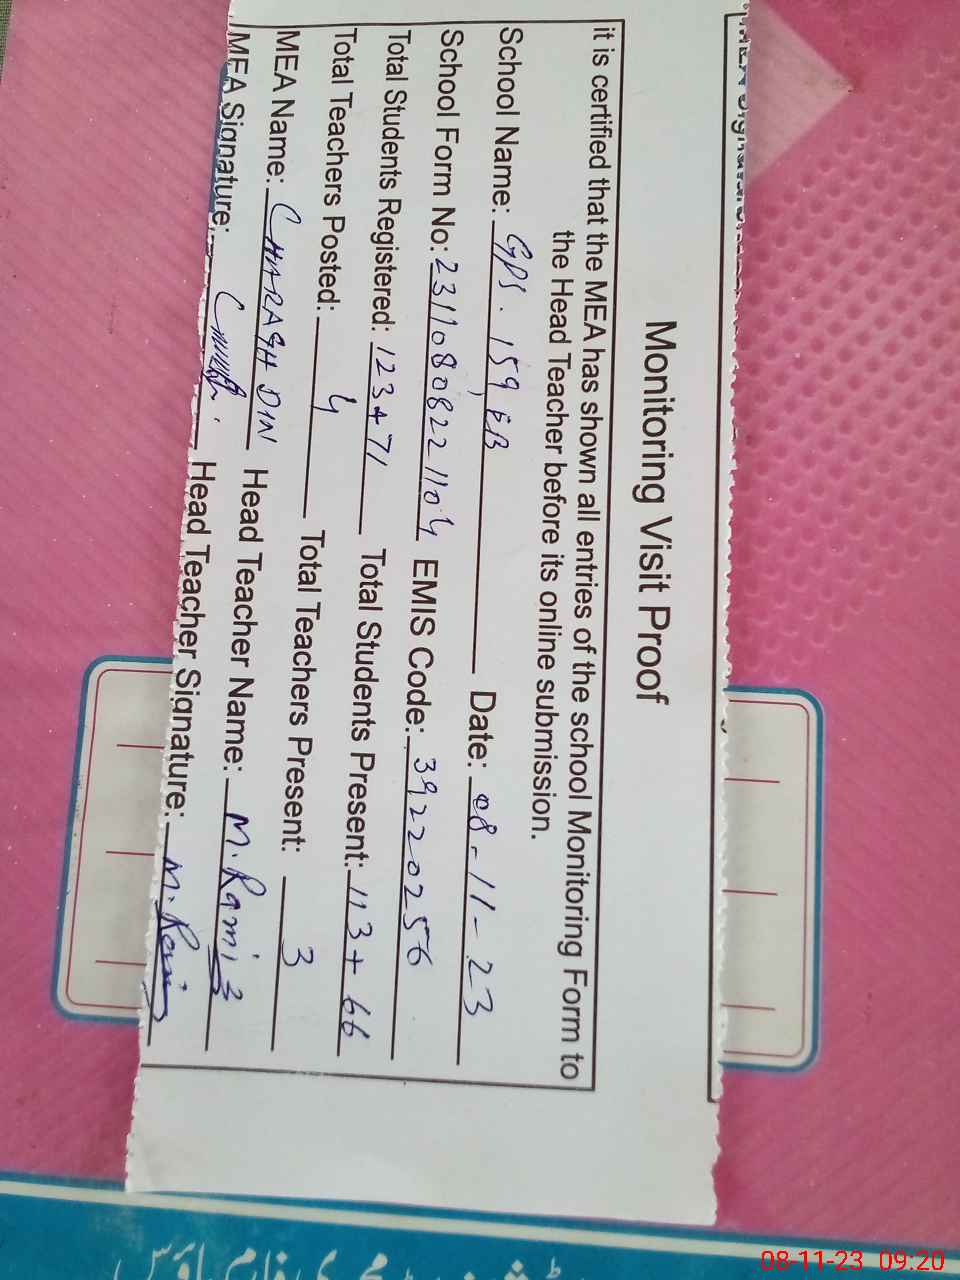 Monitoring Visit Proof
it is certified that the MEA has shown all entries of the school Monitoring Form to
the Head Teacher before its online submission.
School Name: GPS. 159, EB Date: 08-11-23
School Form No: 23110808221104 EMIS Code: 39220256
Total Students Registered: 123+71 Total Students Present: 113+66
Total Teachers Posted: 4 Total Teachers Present: 3
MEA Name: CHARAGH DIN Head Teacher Name: M. Ramiz
MEA Signature: Head Teacher Signature: M. Ramiz
08-11-23 09:20